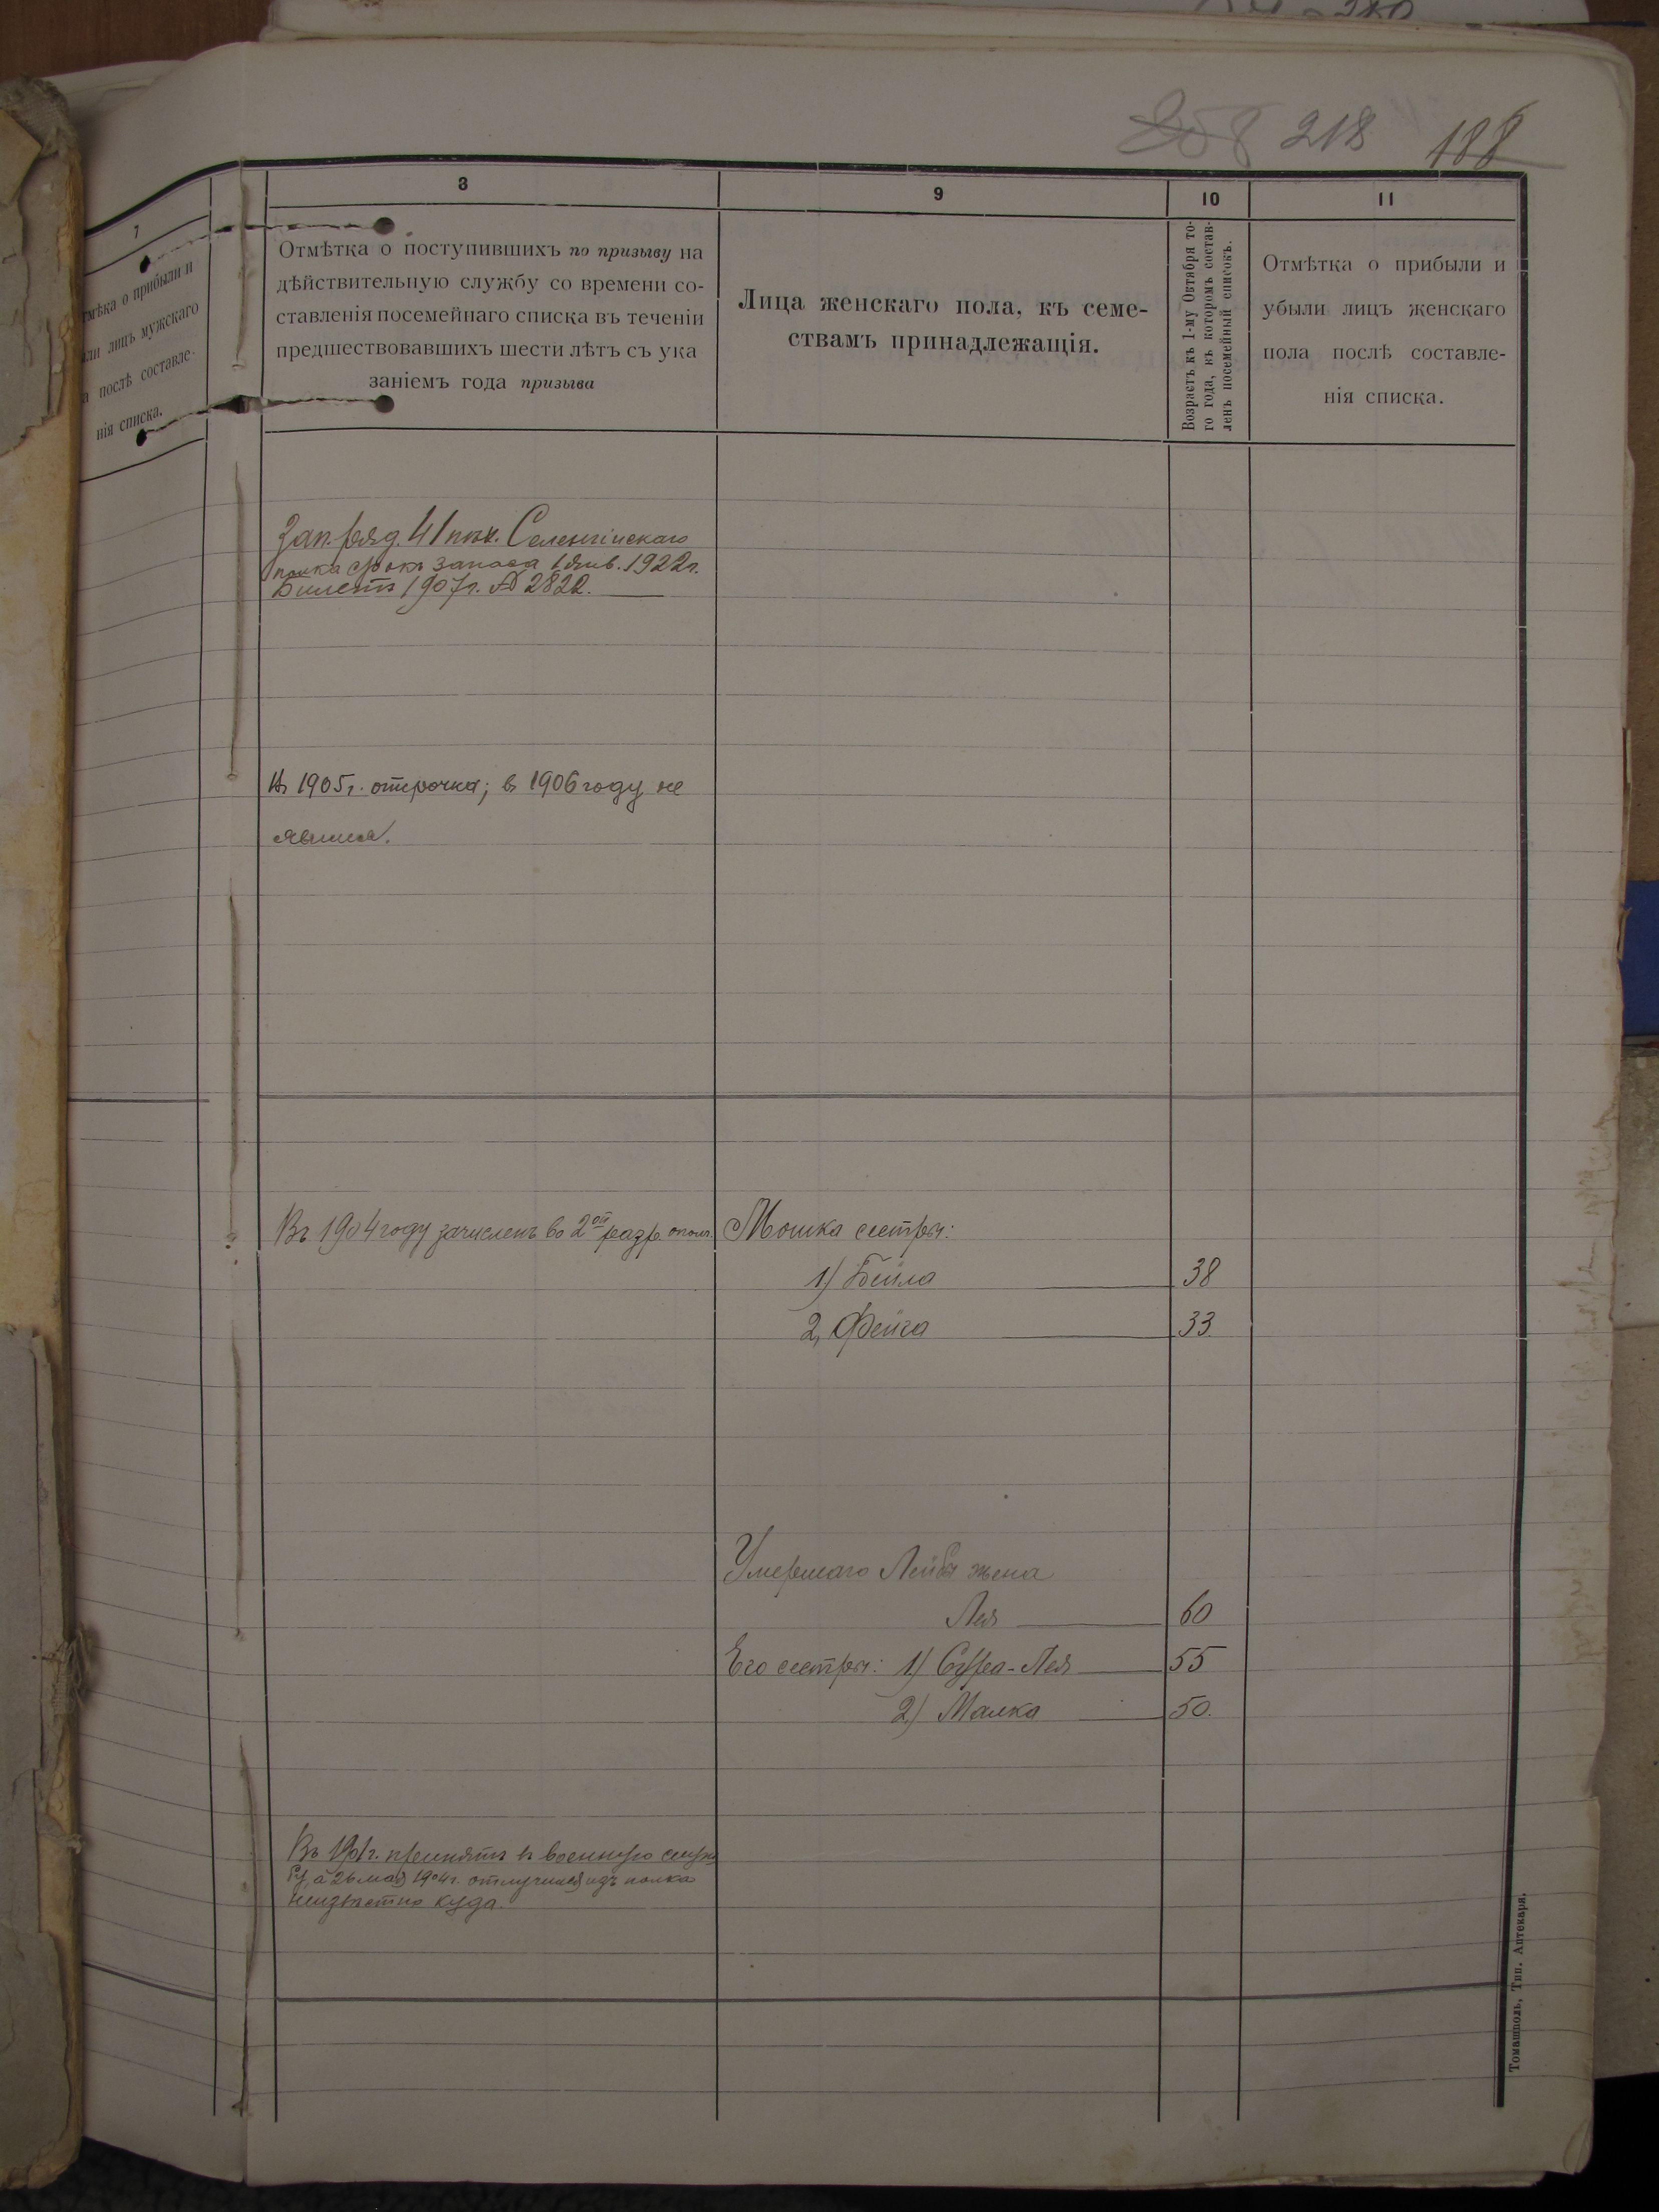 258 218 188
7
8
9
10
11
тмѣтка о прибыли и
ыли лицъ мужскаго
а послѣ составле-
нія списка.
Отмѣтка о поступившихъ по призыву на
дѣйствительную службу со времени со-
ставленія посемейнаго списка въ теченіи
предшествовавшихъ шести лѣтъ съ ука
заніемъ года призыва
Лица женскаго пола, къ семе-
ствамъ принадлежащія.
Возрастъ къ 1-му Октября то-
го года, къ которомъ состав-
ленъ посемейный списокъ.
Отмѣтка о прибыли и
убыли лицъ женскаго
пола послѣ составле-
нія списка.
Зап. ряд. 41 пѣх. Селенгинскаго
полка срокъ запаса 1 янв. 1922 г.
Билетъ 1907 г. № 2822.
Въ 1905 г. отсрочка; въ 1906 году не
явился.
Въ 1904 году зачисленъ во 2ой разр. опол.
Мошка сестры:
1) Бейла 38
2, Фейга 33
Умершаго Лейбы жена
Лея 60
Его сестры: 1) Сура-Лея 55
2) Малка 50.
Въ 1901 г. принятъ въ военную служ
бу, а 26 мая 1904 г. отлучился изъ полка
неизвѣстно куда.
Томашполь, Тип. Аптекаря.